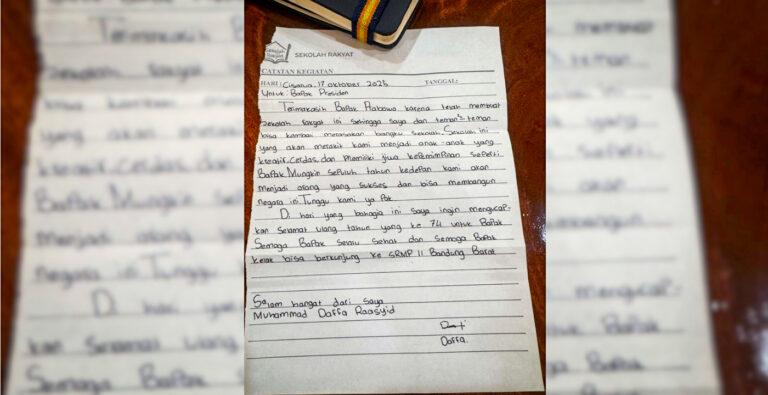 SEKOLAH RAKYAT
CATATAN KEGIATAN
HARI : Cisarua, 17 oktober 2025 TANGGAL:
Untuk: Bapak Presiden
Terimakasih Bapak Prabowo karena telah membuat
sekolah rakyat ini sehingga saya dan teman"-teman
bisa kembali merasakan bangku sekolah. Sekolah ini
yang akan merakit kami menjadi anak-anak yang
kreatif, cerdas, dan Memiliki jiwa kepemimpinan seperti
Bapak. Mungkin sepuluh tahun kedepan kami akan
menjadi orang yang sukses dan bisa membangun
negara ini. Tunggu kami ya Pak.
Di hari yang bahagia ini saya ingin mengucap-
kan selamat ulang tahun yang ke 74 untuk Bapak
Semoga Bapak selalu sehat dan semoga Bapak
kelak bisa berkunjung ke SRMP 11 Bandung Barat
Salam hangat dari saya
Muhammad Daffa Raasyid
Daffa